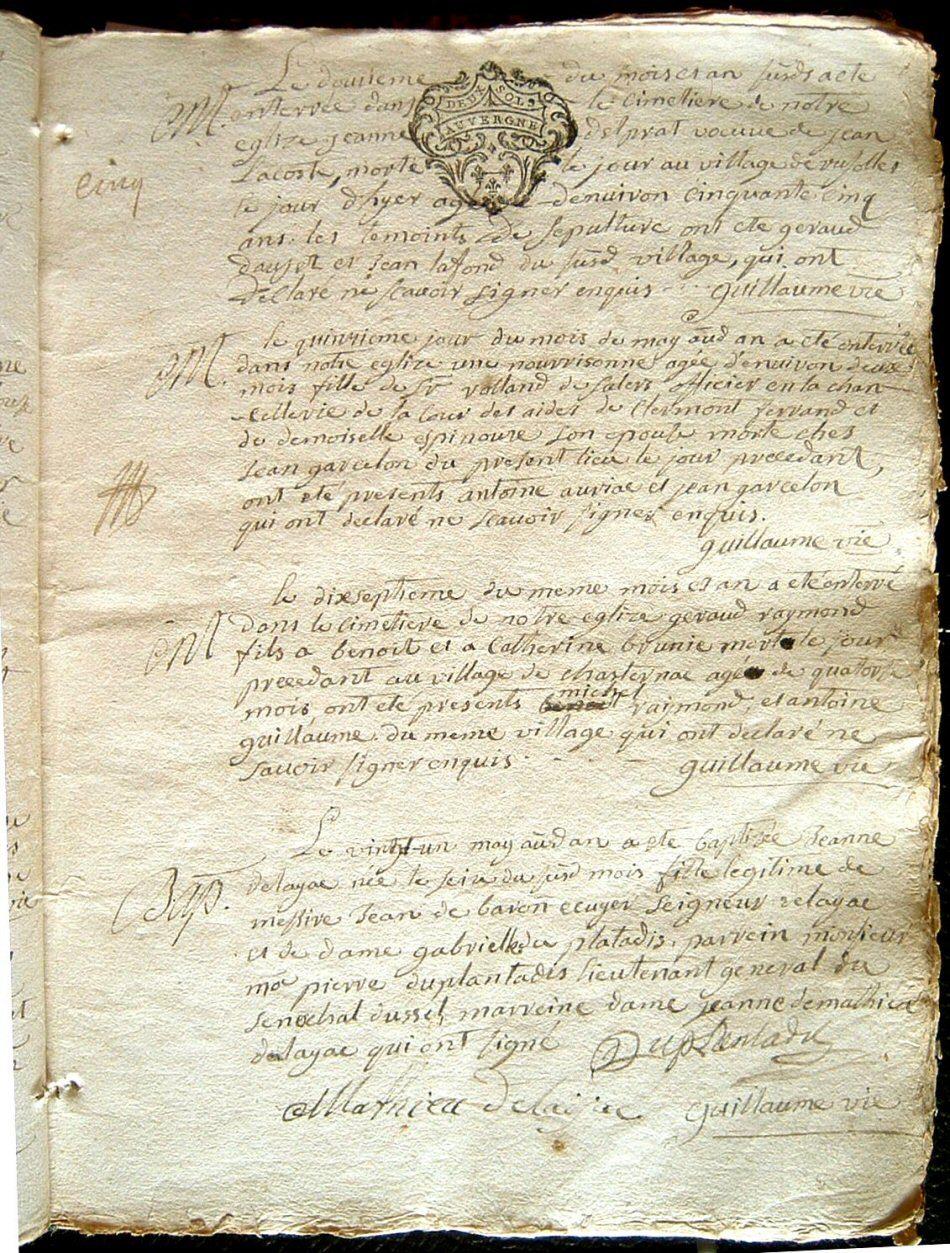 Le douzieme du mois et an susds a ete
M. enterrée dans le cimetiere de notre
eglize jeanne delprat veuve de jean
DEUX SOLS
AUVERGNE
cinq
Lacoste, morte le jour au village de
le jour d'hyer agée d'enuiron cinquante cinq
ans. les temoints de sepulture ont ete geraud
et jean lafond du susd village, qui ont
declaré ne scavoir signer enquis guillaume vie
le quinzieme jour du mois de may aud an a eté enterrée
M. dans notre eglize une nourrisonne agée d'enuiron deux
mois fille de Sr rolland de salers officier en la chan
cellerie de la Cour des aides de Clermont ferrand et
de demoiselle espinouze son epouse morte ches
jean garcelon du present lieu le jour precedant,
ont eté presents antoine auriac et jean garcelon
qui ont declaré ne scavoir signer enquis.
guillaume vie
le dixseptieme du meme mois et an a eté enterré
M dans le cimetiere de notre eglize geraud raymond
fils a benoit et a Catherine brunie mort le jour
precedant au village de chasternac agé de quatorze
mois, ont ete presents michel raimond, et antoine
guillaume du meme village qui ont declaré ne
savoir signer enquis guillaume vie
Le vingt un may aud an a ete baptisée Jeanne
Bap. delayac née le seiz du susd mois fille legitime de
messire Jean de baron ecuyer Seigneur delayac
et de dame gabrielle du platadis, parrein monsieur
me pierre duplantadis lieutenant general du
senechal dussel, marreine dame jeanne demathieu
delayac qui ont signé Duplantadis
Mathieu delayac guillaume vie